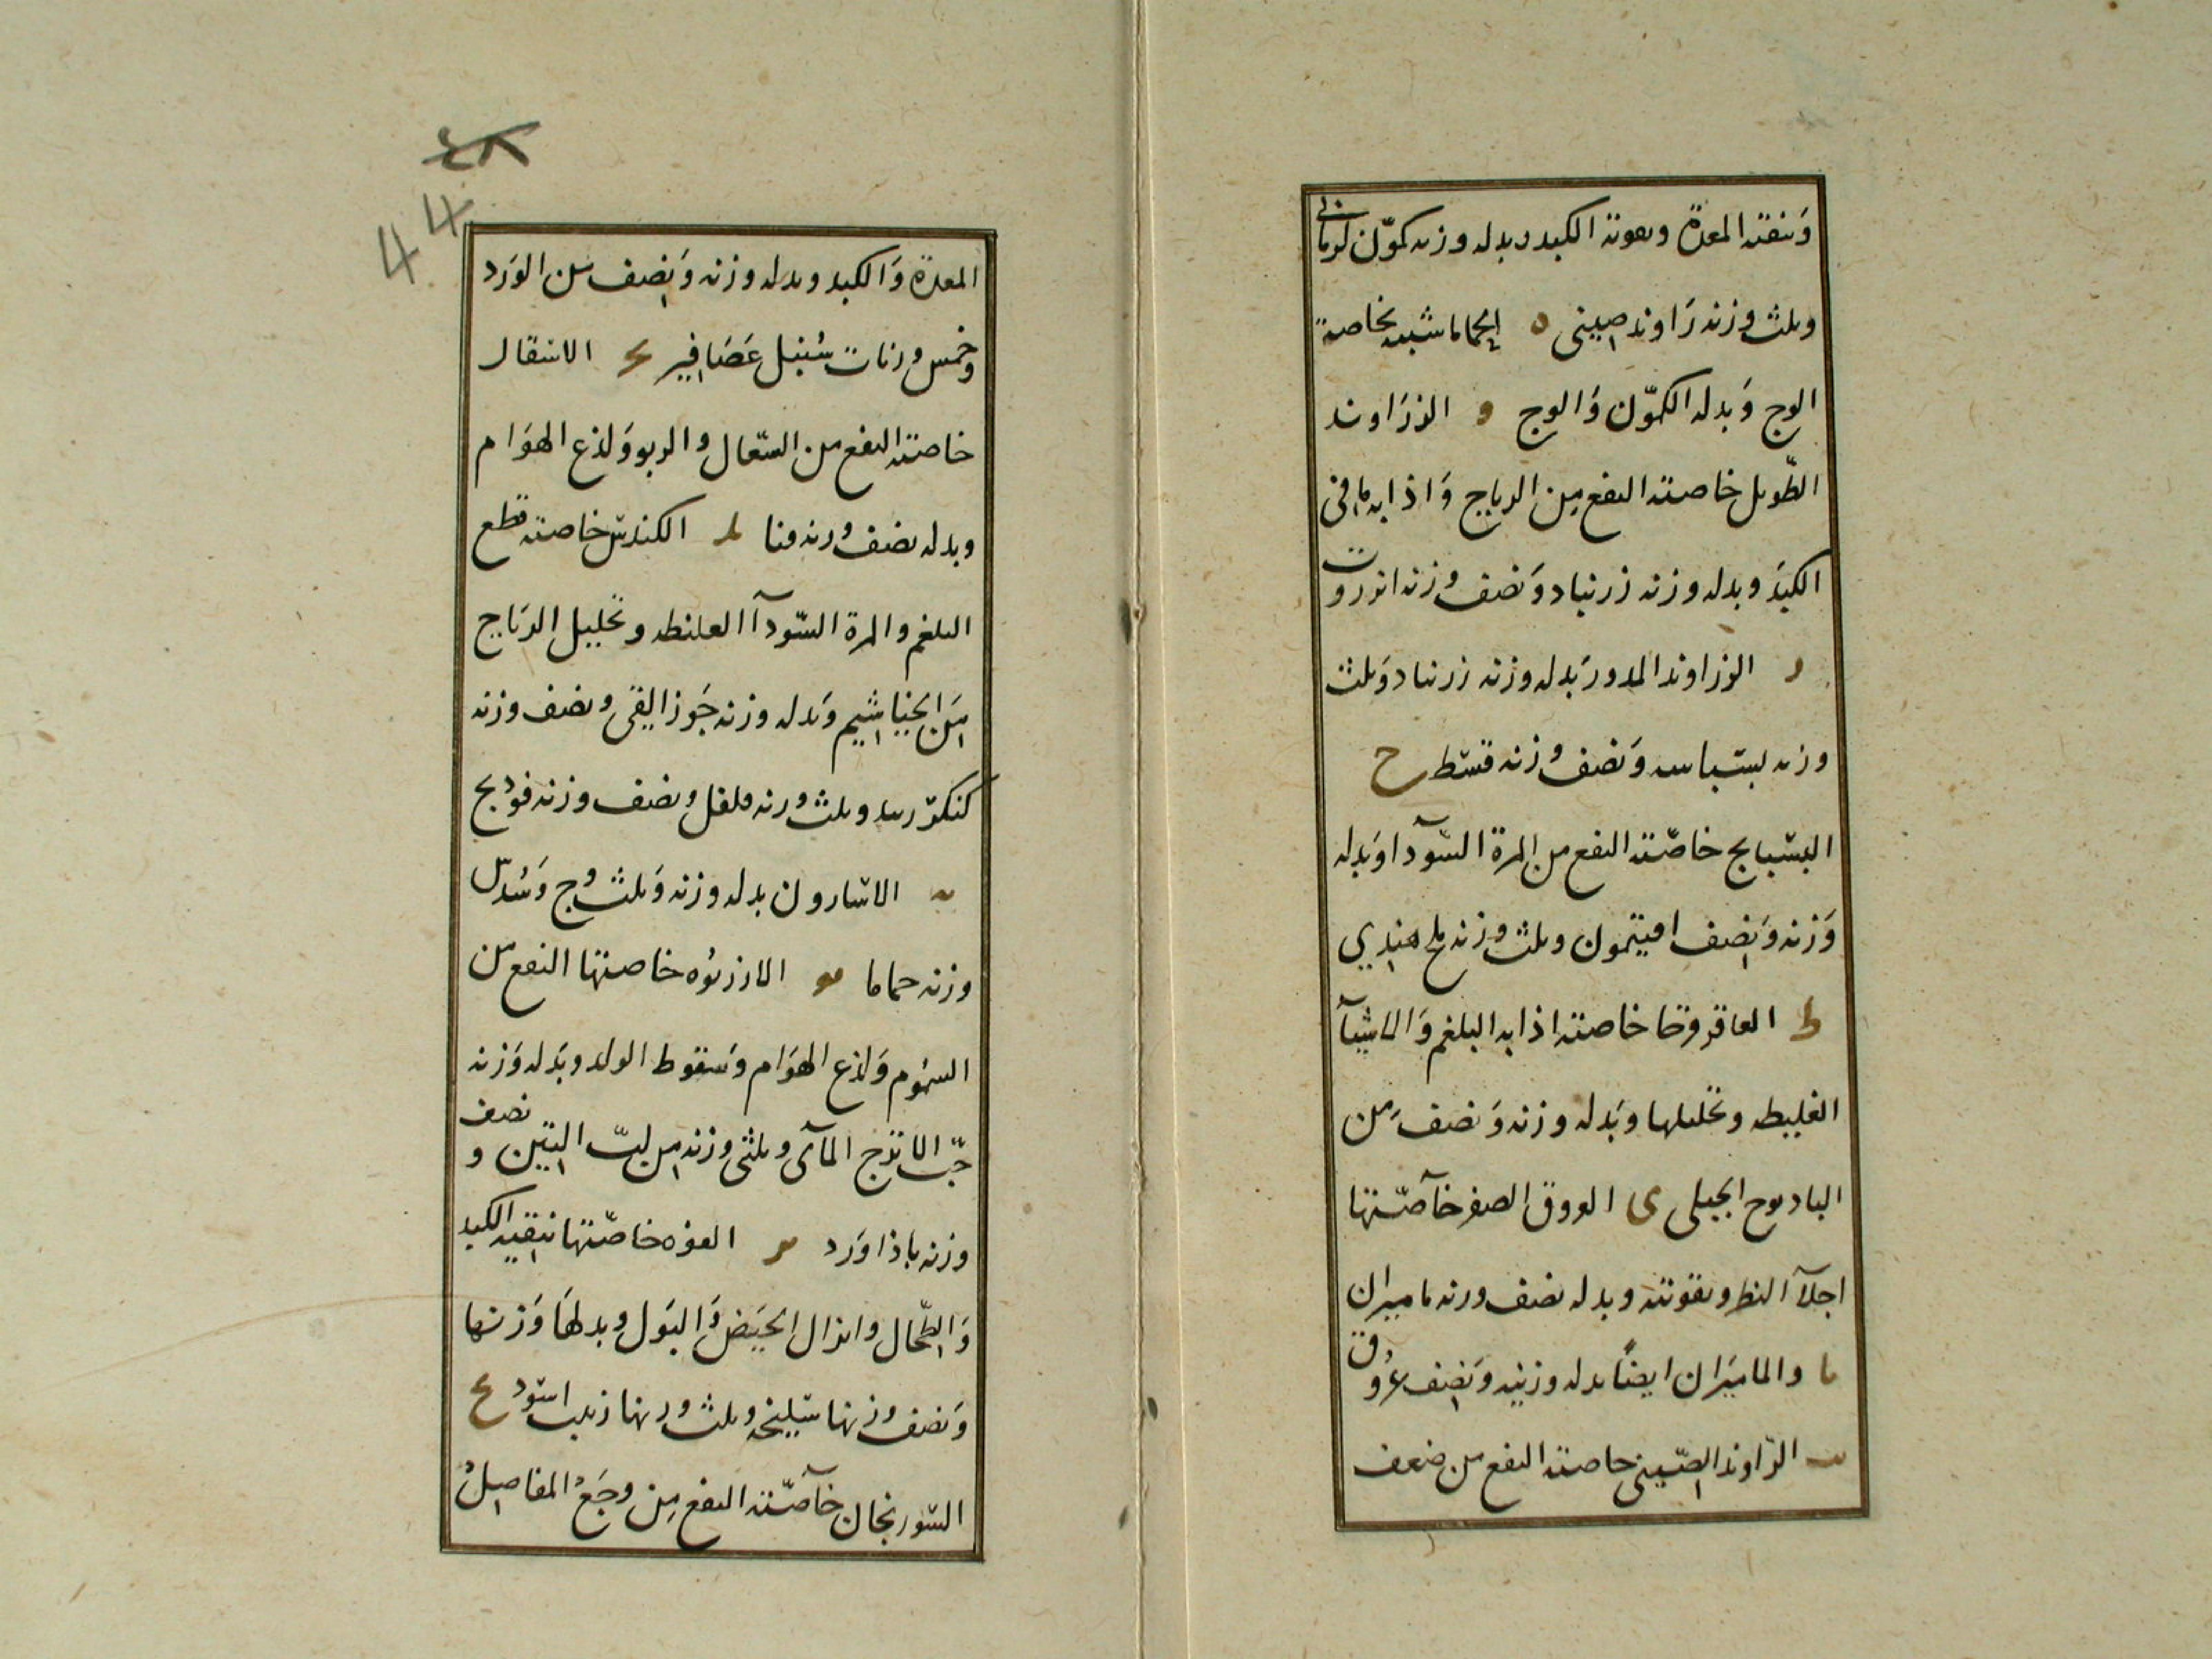 وتنقية المعدة وىقوىه الكبد وبدله وزنه كمّون كرمانى
وىلث وزنه رَاوند صينى ه الحماما شبيه بخاصة
الوج وَبدله الكمّون وَالوج و الزرَاوند
الطّوىل خاصته النفع مِن الرياح وَاذابه ما فى
الكبدَ وبدله وزنه زرنباد وَنصف وزنه انزروت
ر الزراوند المدور بَدله وزنه زرنباد وَىلث
وزنه بسباسه وَنصف وزنه قسط ح
البسبايج خاصّته النفع من المرة السّودآ وَبدله
وَزنه وَنصف افيتمون وىلث وزنه ملح هندي
ط العاقرقرحا خاصته اذابه البلغم وَالاشيآ
الغليظه وتحليلها وبَدله وزنه وَنصف مِن
البادىوح الجبلى ى العروق الصفر خآصّتها
اجلآ النظر وىقوىته وبدله نصف ورنه ماميران
ىا والماميرَان ايضاً بدله وزنه وَنصف عُروق
ىب الرّاوند الصّينى خاصته النفع من ضعف
٤٨
44
المعدة وَالكبد وبدله وزنه وَنصف من الوَرد
وخمس ورنات سُنبل عَصَافير ىح الاسقال
خاصته النفع من السّعال والربو وَلذع الهوَام
وبدله نصف ورنه قنا ىد الكندس خاصته قطع
البلغم والمرة السّودآ الغليظه وتحليل الرياح
مِنَ الخياشيم وَبدله وزنه جَوز القى ونصف وزنه
كنكرزىد وىلث ورنه فلفل ونصف وزنه فودىج
ىه الاسارون بدله وزنه وَىلث وج وَسُدس
وزنه حماما ىو الازرىوه خاصتها النفع من
السمُوم وَلذع الهوَام وَسقوط الولد وبَدله وَزنه
حبّ الاترج المآى وىلثى وزنه من لبّ التين و نصف
وزنه باذاوَرد ىر الفوه خاصّتها تنقيه الكبد
وَالطّحال وانزال الحيَض وَالبَول وبدلهَا وَزنها
وَنصف وزنها سَليخه وىلث ورنها زبيب اسَود ىح
السّورنجان خآصّته النفع مِن وجَع المفاصِل